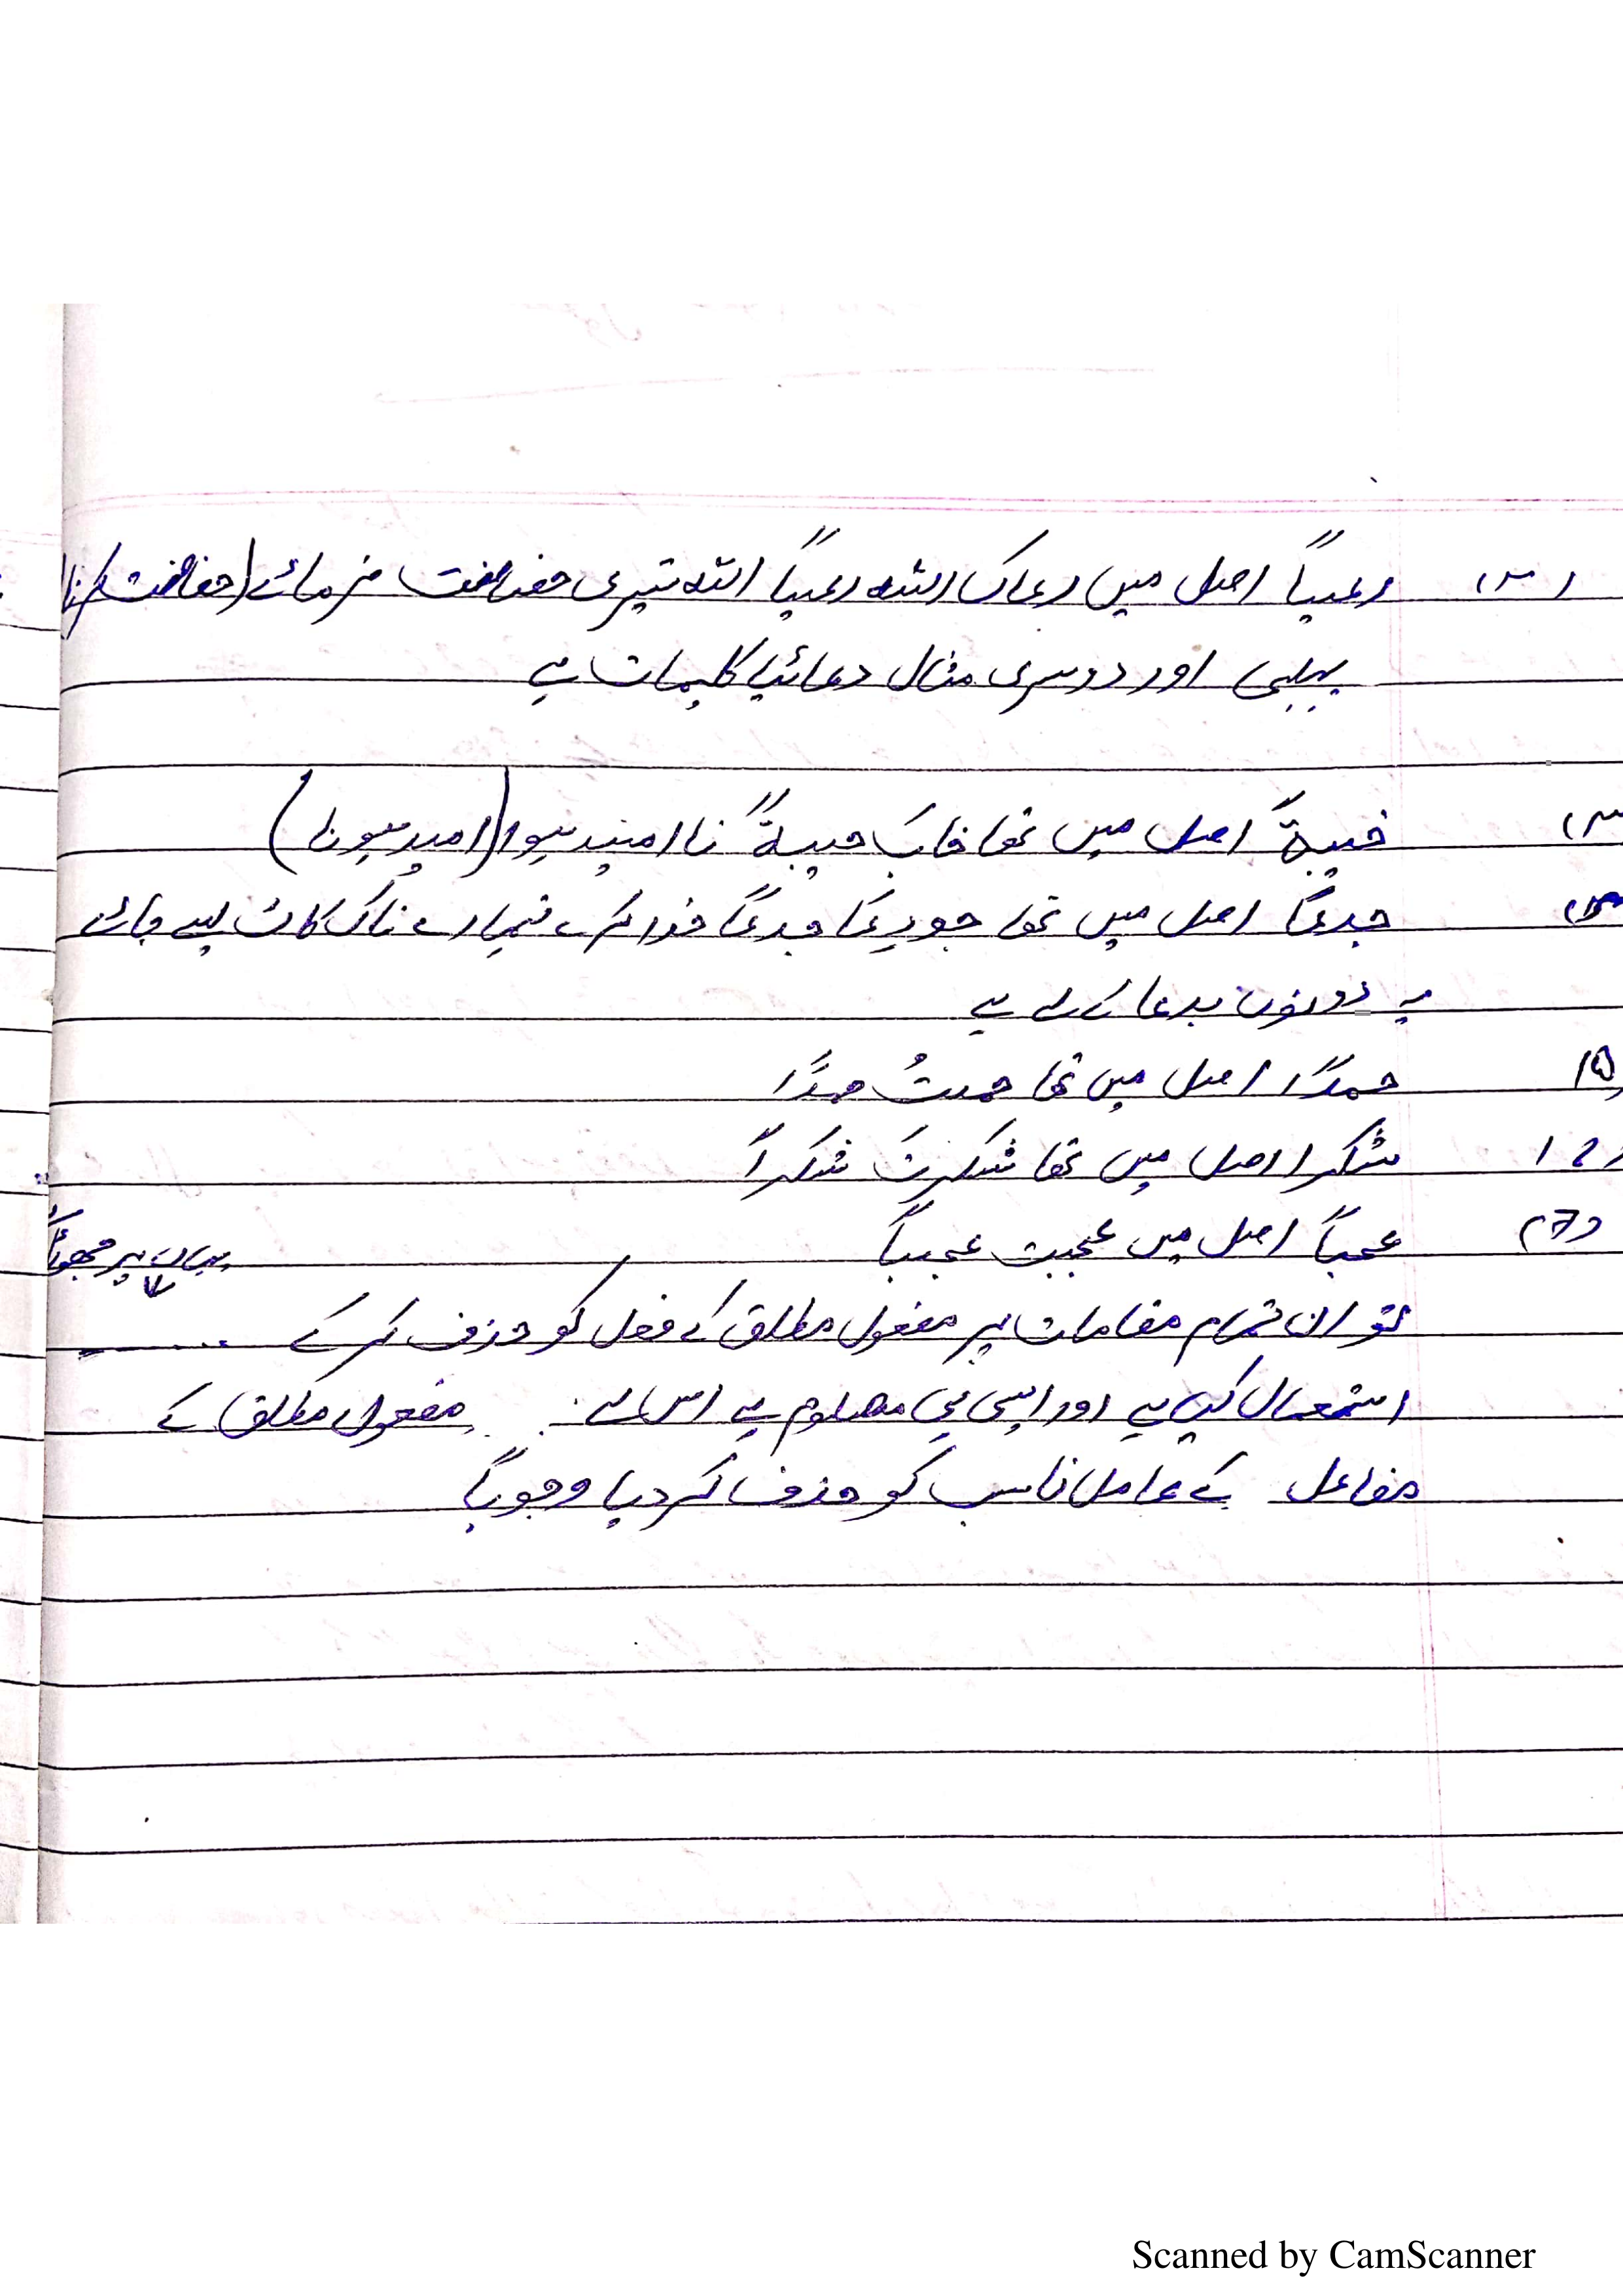 (۲) رعیاً اصل میں رعاک اللہ رعیاً اللہ تیری حفاظت فرمائے (حفاظت کرنا)
پہلی اور دوسری مثال دعائیا کلیمات ہے
(۳) خیبۃً اصل میں تھا خابَ خیبۃً نا امید ہوا (امید ہونا)
جدعًا اصل میں تھا جدعًا خدا کرے تمہارے ناک کان لیے جائے
یہ دونوں بدعا کے لے ہے
(۵ حمدًا اصل میں تھا حمدتُ حمدًا
(۶) شکرا اصل میں تھا شکرتَ شکراً
(7) عجباً اصل میں عجبت عجباً
یہاں پر
تو ان تمام مقامات پر مفعول مطلق کے فعل کو حذف کرکے
استعمال کیے ہے اور ایسی ہی معلوم ہے اس لے مفعول مطلق کے
مفاعل کے عامل ناسب کو حذف کر دیا وجوباً
Scanned by CamScanner